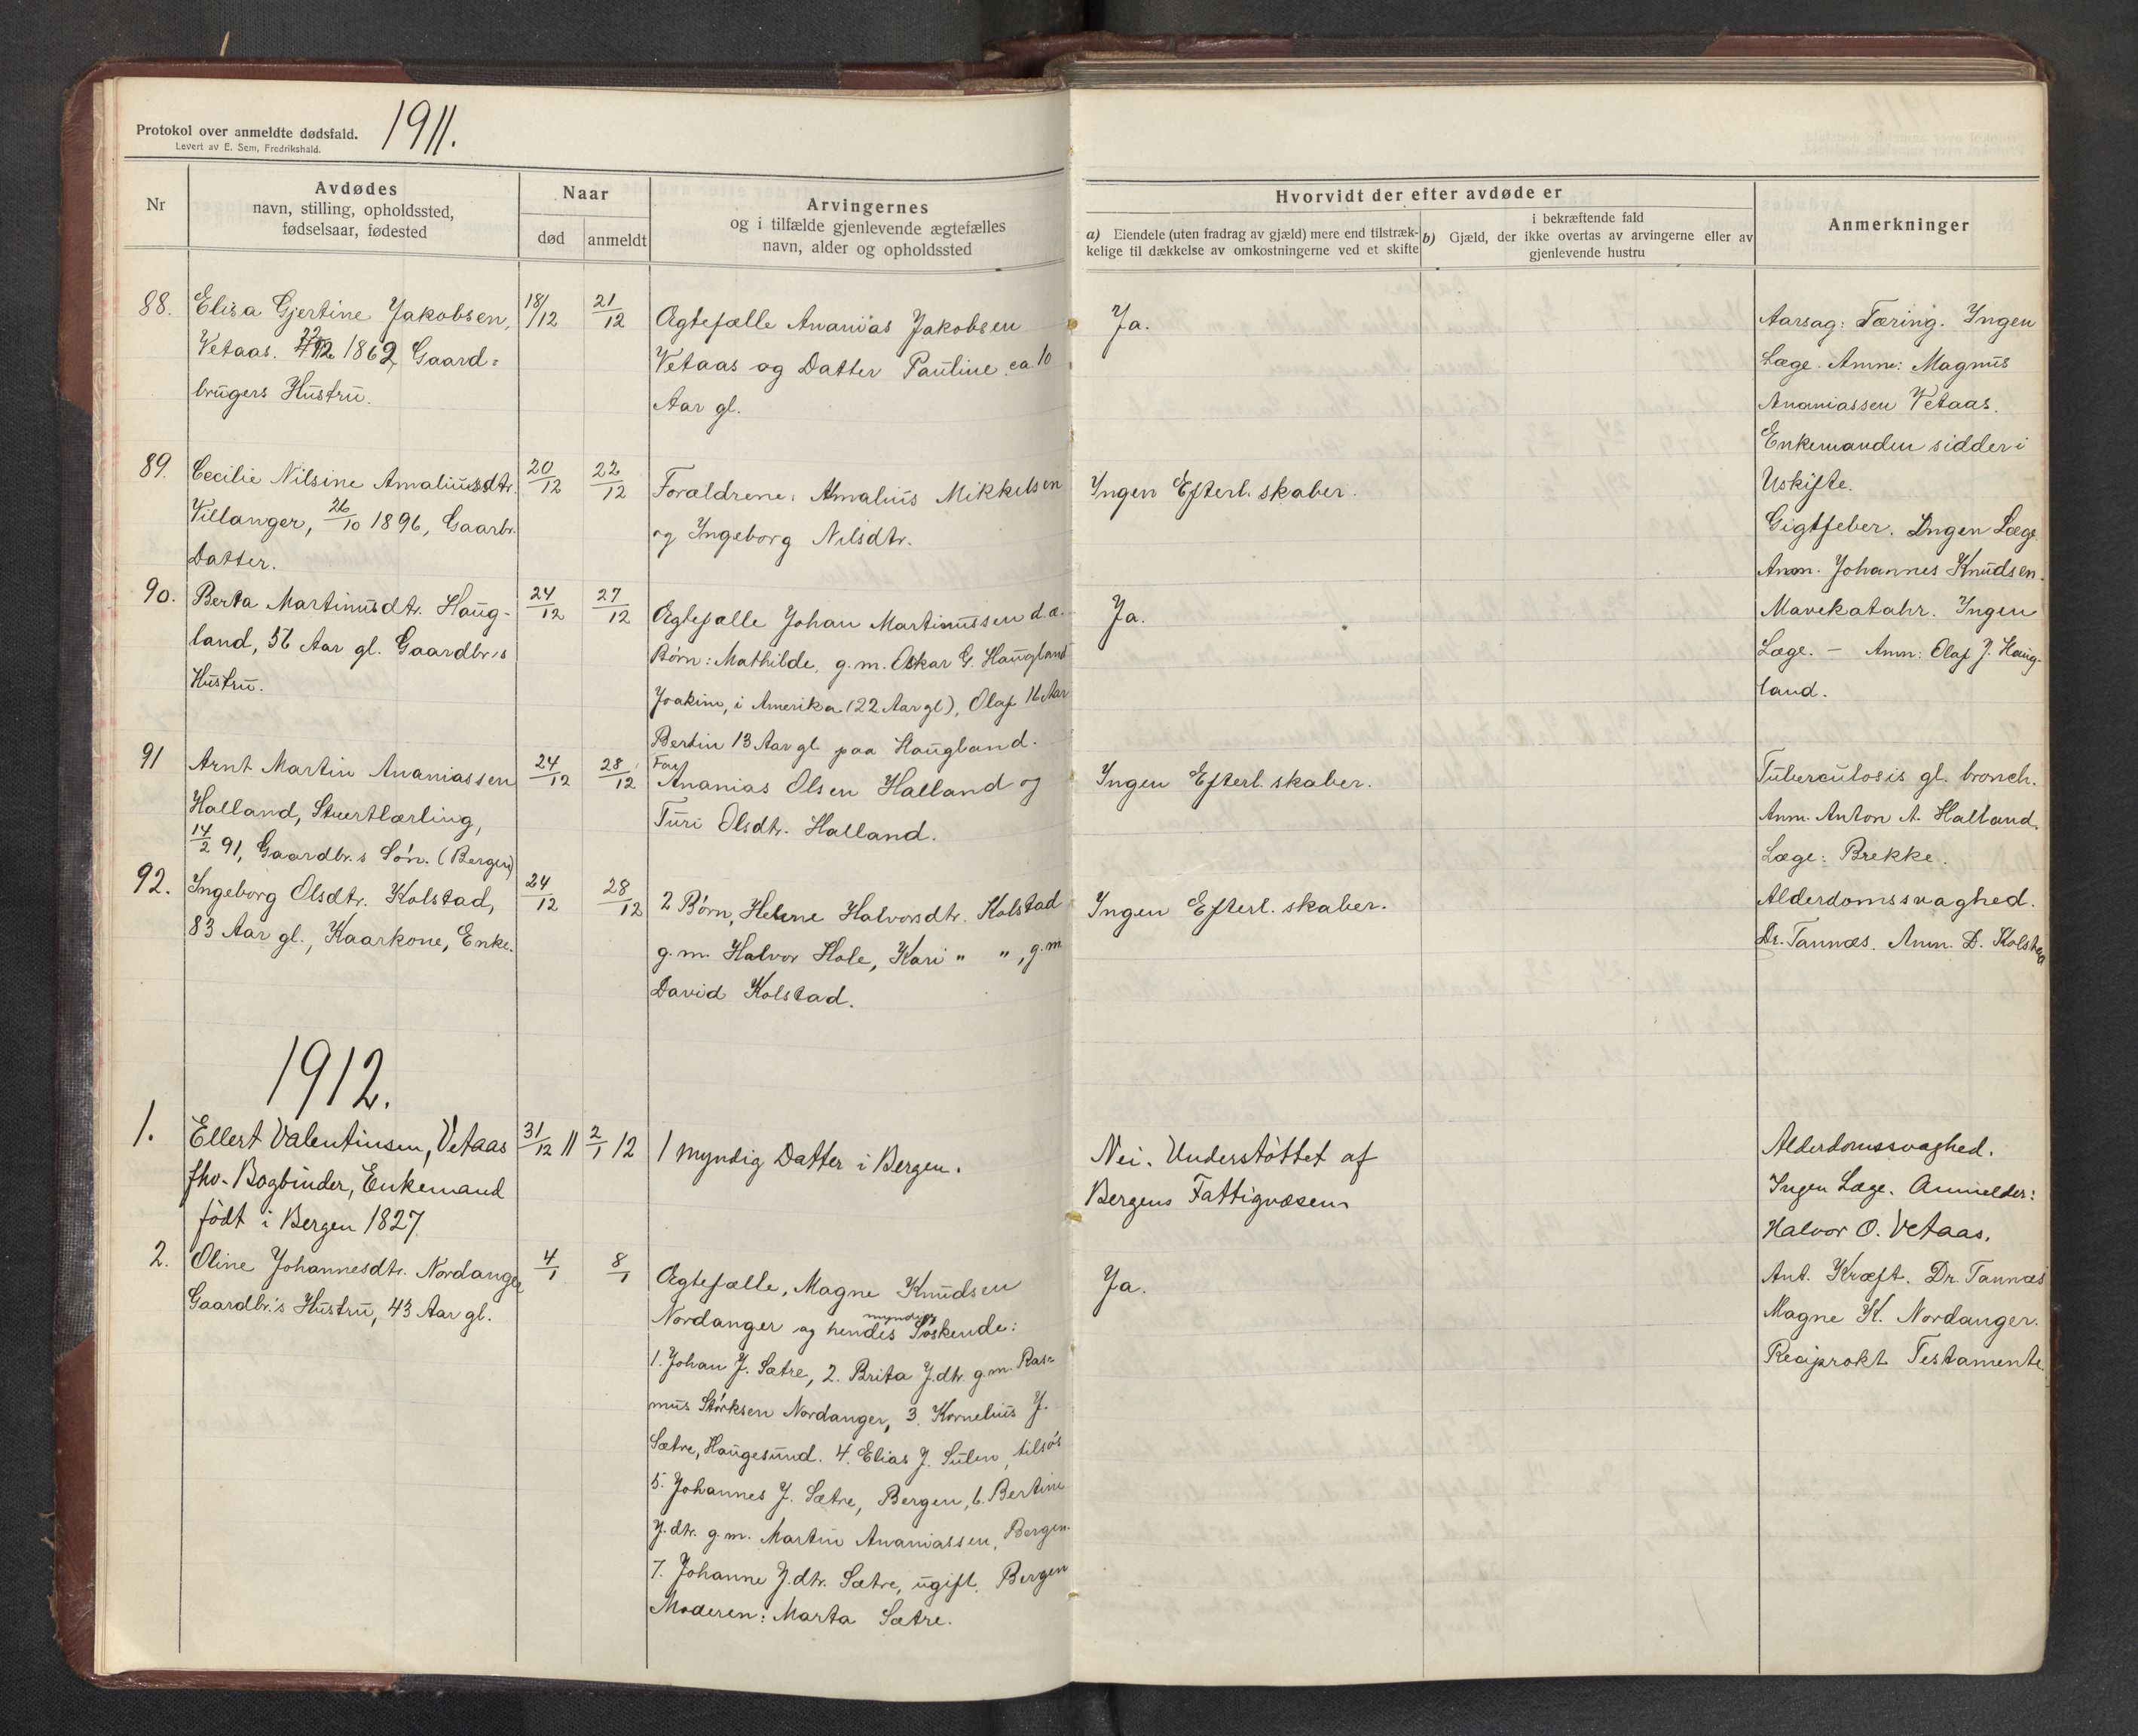 Protokol over anmeldte dødsfald.
Levert av E. Sem, Fredrikshald.
1911.
Nr
Avdødes
navn, stilling, opholdssted,
fødselsaar, fødested
Naar
død
anmeldt
Arvingernes
og i tilfælde gjenlevende ægtefælles
navn, alder og opholdssted
Hvorvidt der efter avdøde er
a) Eiendele (uten fradrag av gjæld) mere end tilstræk-
kelige til dækkelse av omkostningerne ved et skifte
i bekræftende fald
b) Gjæld, der ikke overtas av arvingerne eller av
gjenlevende hustru
Anmerkninger
88.
Elisa Gjertine Jakobsen,
Vetaas. 1862, Gaard=
brugers Hustru.
18/12
21/12
Ægtefælle Ananias Jakobsen
Vetaas og Datter Pauline ca. 10
Aar gl.
Ja.
Aarsag: Tæring. Ingen
Læge. Anm: Magnus
Ananiassen Vetaas.
Enkemanden sidder i
Uskifte.
89.
Cecilie Nilsine Amaliusdtr.
Villanger, 26/10 1896, Gaarbr.
Datter.
20/12
22/12
Forældrene: Amalius Mikkelsen
og Ingeborg Nilsdtr.
Ingen Efterl. skaber.
Gigtfeber. Ingen Læge.
Anm. Johannes Knudsen.
90.
Berta Martinusdtr. Haug-
land, 56 Aar gl. Gaardbr.s
Hustru.
24/12
27/12
Ægtefælle Johan Martinussen d.æ.
Børn: Mathilde, g.m. Oskar G. Haugland
Joakim, i Amerika (22 Aar gl), Olaf 16 Aar
Bertin 13 Aar gl. paa Haugland.
Ja.
Mavekatahr. Ingen
Læge. – Anm: Olaf J. Haug-
land.
91
Arnt Martin Ananiassen
Halland, Stuertlærling,
14/2 91, Gaardbr.s Søn. (Bergen)
24/12
28/12
Far
Ananias Olsen Halland og
Turi Olsdtr. Halland.
Ingen Efterl. skaber.
Tuberculosis gl. bronch.
Anm. Anton A. Halland.
Læge: Brekke.
92.
Ingeborg Olsdtr. Kolstad,
83 Aar gl., Kaarkone, Enke.
24/12
28/12
2 Børn, Helene Halvorsdtr. Kolstad
g.m. Halvor Hole, Kari " ", g.m
David Kolstad.
Ingen Efterl. skaber.
Alderdomssvaghed.
Dr. Tannæs. Anm. D. Kolstad
1912.
1.
Ellert Valentinsen, Vetaas
fhv. Bogbinder, Enkemand
født i Bergen 1827.
31/12 11
2/1 12
1 myndig Datter i Bergen.
Nei. Understøttet af
Bergens Fattigvæsen
Alderdomssvaghed.
Ingen Læge. Anmelder:
Halvor O. Vetaas.
2.
Oline Johannesdtr. Nordanger
Gaardbr.'s Hustru, 43 Aar gl.
4/1
8/1
Ægtefælle, Magne Knudsen
myndige
Nordanger og hendes Søskende:
1. Johan J. Sætre, 2. Brita J.dtr. g.m. Ras=
mus Størksen Nordanger, 3. Kornelius J.
Sætre, Haugesund. 4. Elias J. Sulen, tilsøs
5. Johannes J. Sætre, Bergen, 6. Bertine
J.dtr. g.m. Martin Ananiassen, Bergen.
7. Johanne J.dtr. Sætre, ugift. Bergen
Moderen: Marta Sætre.
Ja.
Ant. Kræft. Dr. Tannæs
Magne K. Nordanger.
Reciprokt Testamente.